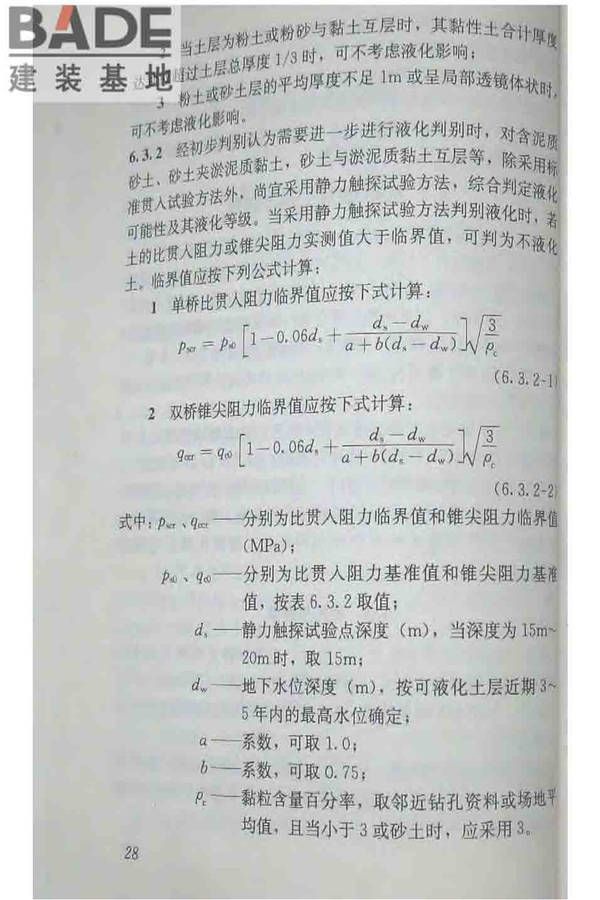 BADE
建装基地
2 当土层为粉土或粉砂与黏土互层时，其黏性土合计厚度
达 超过土层总厚度 1/3 时，可不考虑液化影响；
3 粉土或砂土层的平均厚度不足 1m 或呈局部透镜体状时，
可不考虑液化影响。
6.3.2 经初步判别认为需要进一步进行液化判别时，对含泥质
砂土、砂土夹淤泥质黏土，砂土与淤泥质黏土互层等，除采用标
准贯入试验方法外，尚宜采用静力触探试验方法，综合判定液化
可能性及其液化等级。当采用静力触探试验方法判别液化时，若
土的比贯入阻力或锥尖阻力实测值大于临界值，可判为不液化
土。临界值应按下列公式计算：
1 单桥比贯入阻力临界值应按下式计算：
pscr = ps0 [1−0.06ds + (ds−dw)/(a+b(ds−dw))] √(3/ρc)
(6.3.2-1)
2 双桥锥尖阻力临界值应按下式计算：
qccr = qc0 [1−0.06ds + (ds−dw)/(a+b(ds−dw))] √(3/ρc)
(6.3.2-2)
式中：pscr、qccr——分别为比贯入阻力临界值和锥尖阻力临界值
(MPa)；
ps0、qc0——分别为比贯入阻力基准值和锥尖阻力基准
值，按表 6.3.2 取值；
ds——静力触探试验点深度（m），当深度为 15m~
20m 时，取 15m；
dw——地下水位深度（m），按可液化土层近期 3~
5 年内的最高水位确定；
a——系数，可取 1.0；
b——系数，可取 0.75；
ρc——黏粒含量百分率，取邻近钻孔资料或场地平
均值，且当小于 3 或砂土时，应采用 3。
28